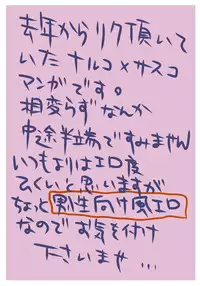 去年からリク頂いて
いたナルコ×サスコ
マンガです。
相変らずなんか
中途半端ですみません
いつもよりはエロ度
たくいと思いますが
なっと男性向け風エロ
なのでお気を付け
下さいませ…